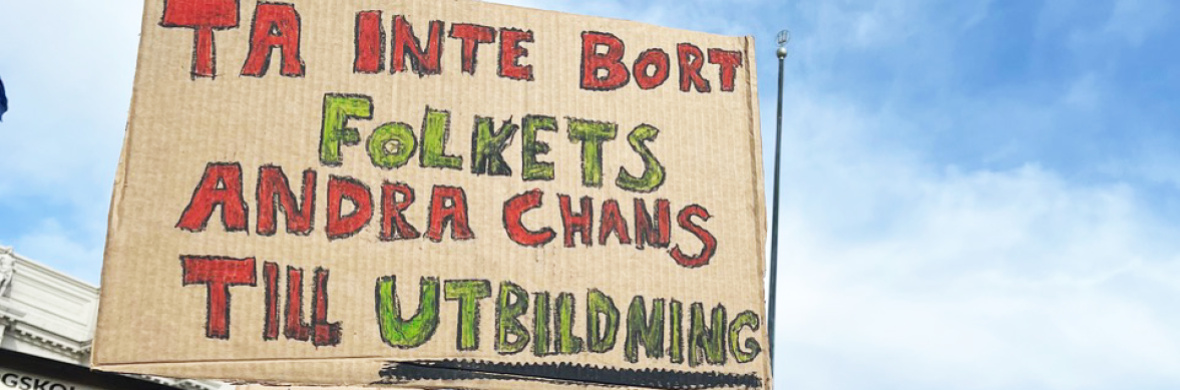 TA INTE BORT
FOLKETS
ANDRA CHANS
TILL UTBILDNING